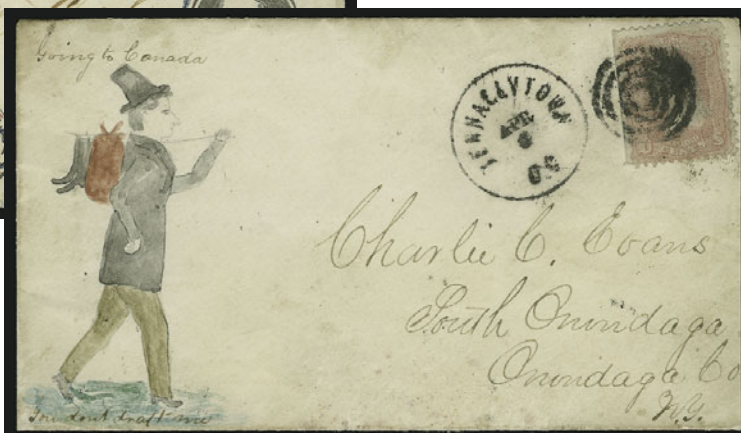 Going to Canada
TENNALLYTOWN
APR
6
Charlie C. Evans
South Onondaga
Onondaga Co
N.Y.
You dont draft me